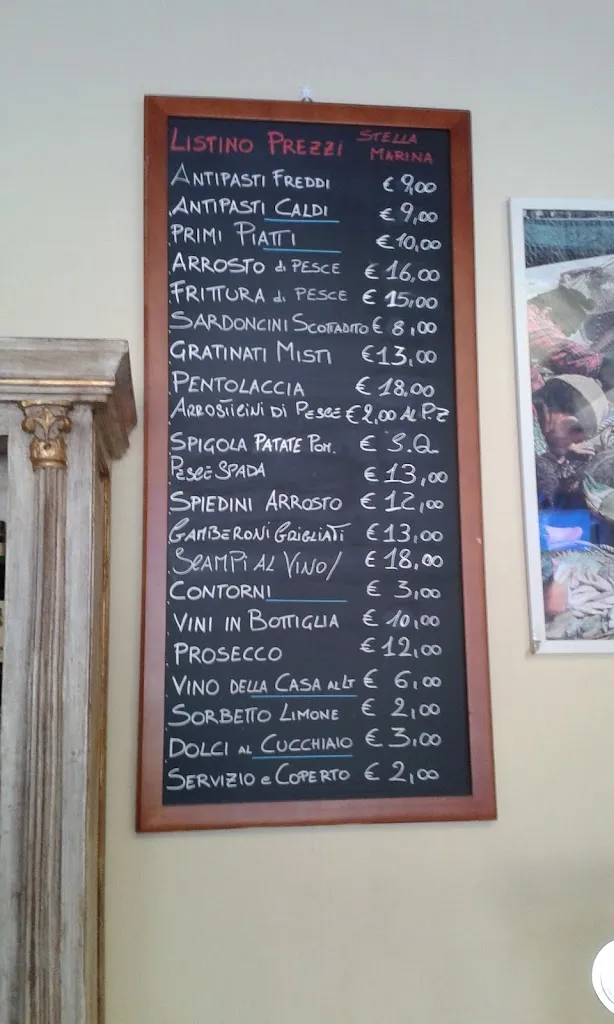 LISTINO PREZZI STELLA MARINA
ANTIPASTI FREDDI € 9,00
ANTIPASTI CALDI € 9,00
PRIMI PIATTI € 10,00
ARROSTO di PESCE € 16,00
FRITTURA di PESCE € 15,00
SARDONCINI SCOTTADITO € 8,00
GRATINATI MISTI € 13,00
PENTOLACCIA € 18,00
ARROSTICINI DI PESCE € 2,00 AL PZ
SPIGOLA PATATE POM. € S.Q.
PESCE SPADA € 13,00
SPIEDINI ARROSTO € 12,00
GAMBERONI GRIGLIATI € 13,00
SCAMPI AL VINO/ € 18,00
CONTORNI € 3,00
VINI IN BOTTIGLIA € 10,00
PROSECCO € 12,00
VINO DELLA CASA AL LT € 6,00
SORBETTO LIMONE € 2,00
DOLCI AL CUCCHIAIO € 3,00
SERVIZIO e COPERTO € 2,00